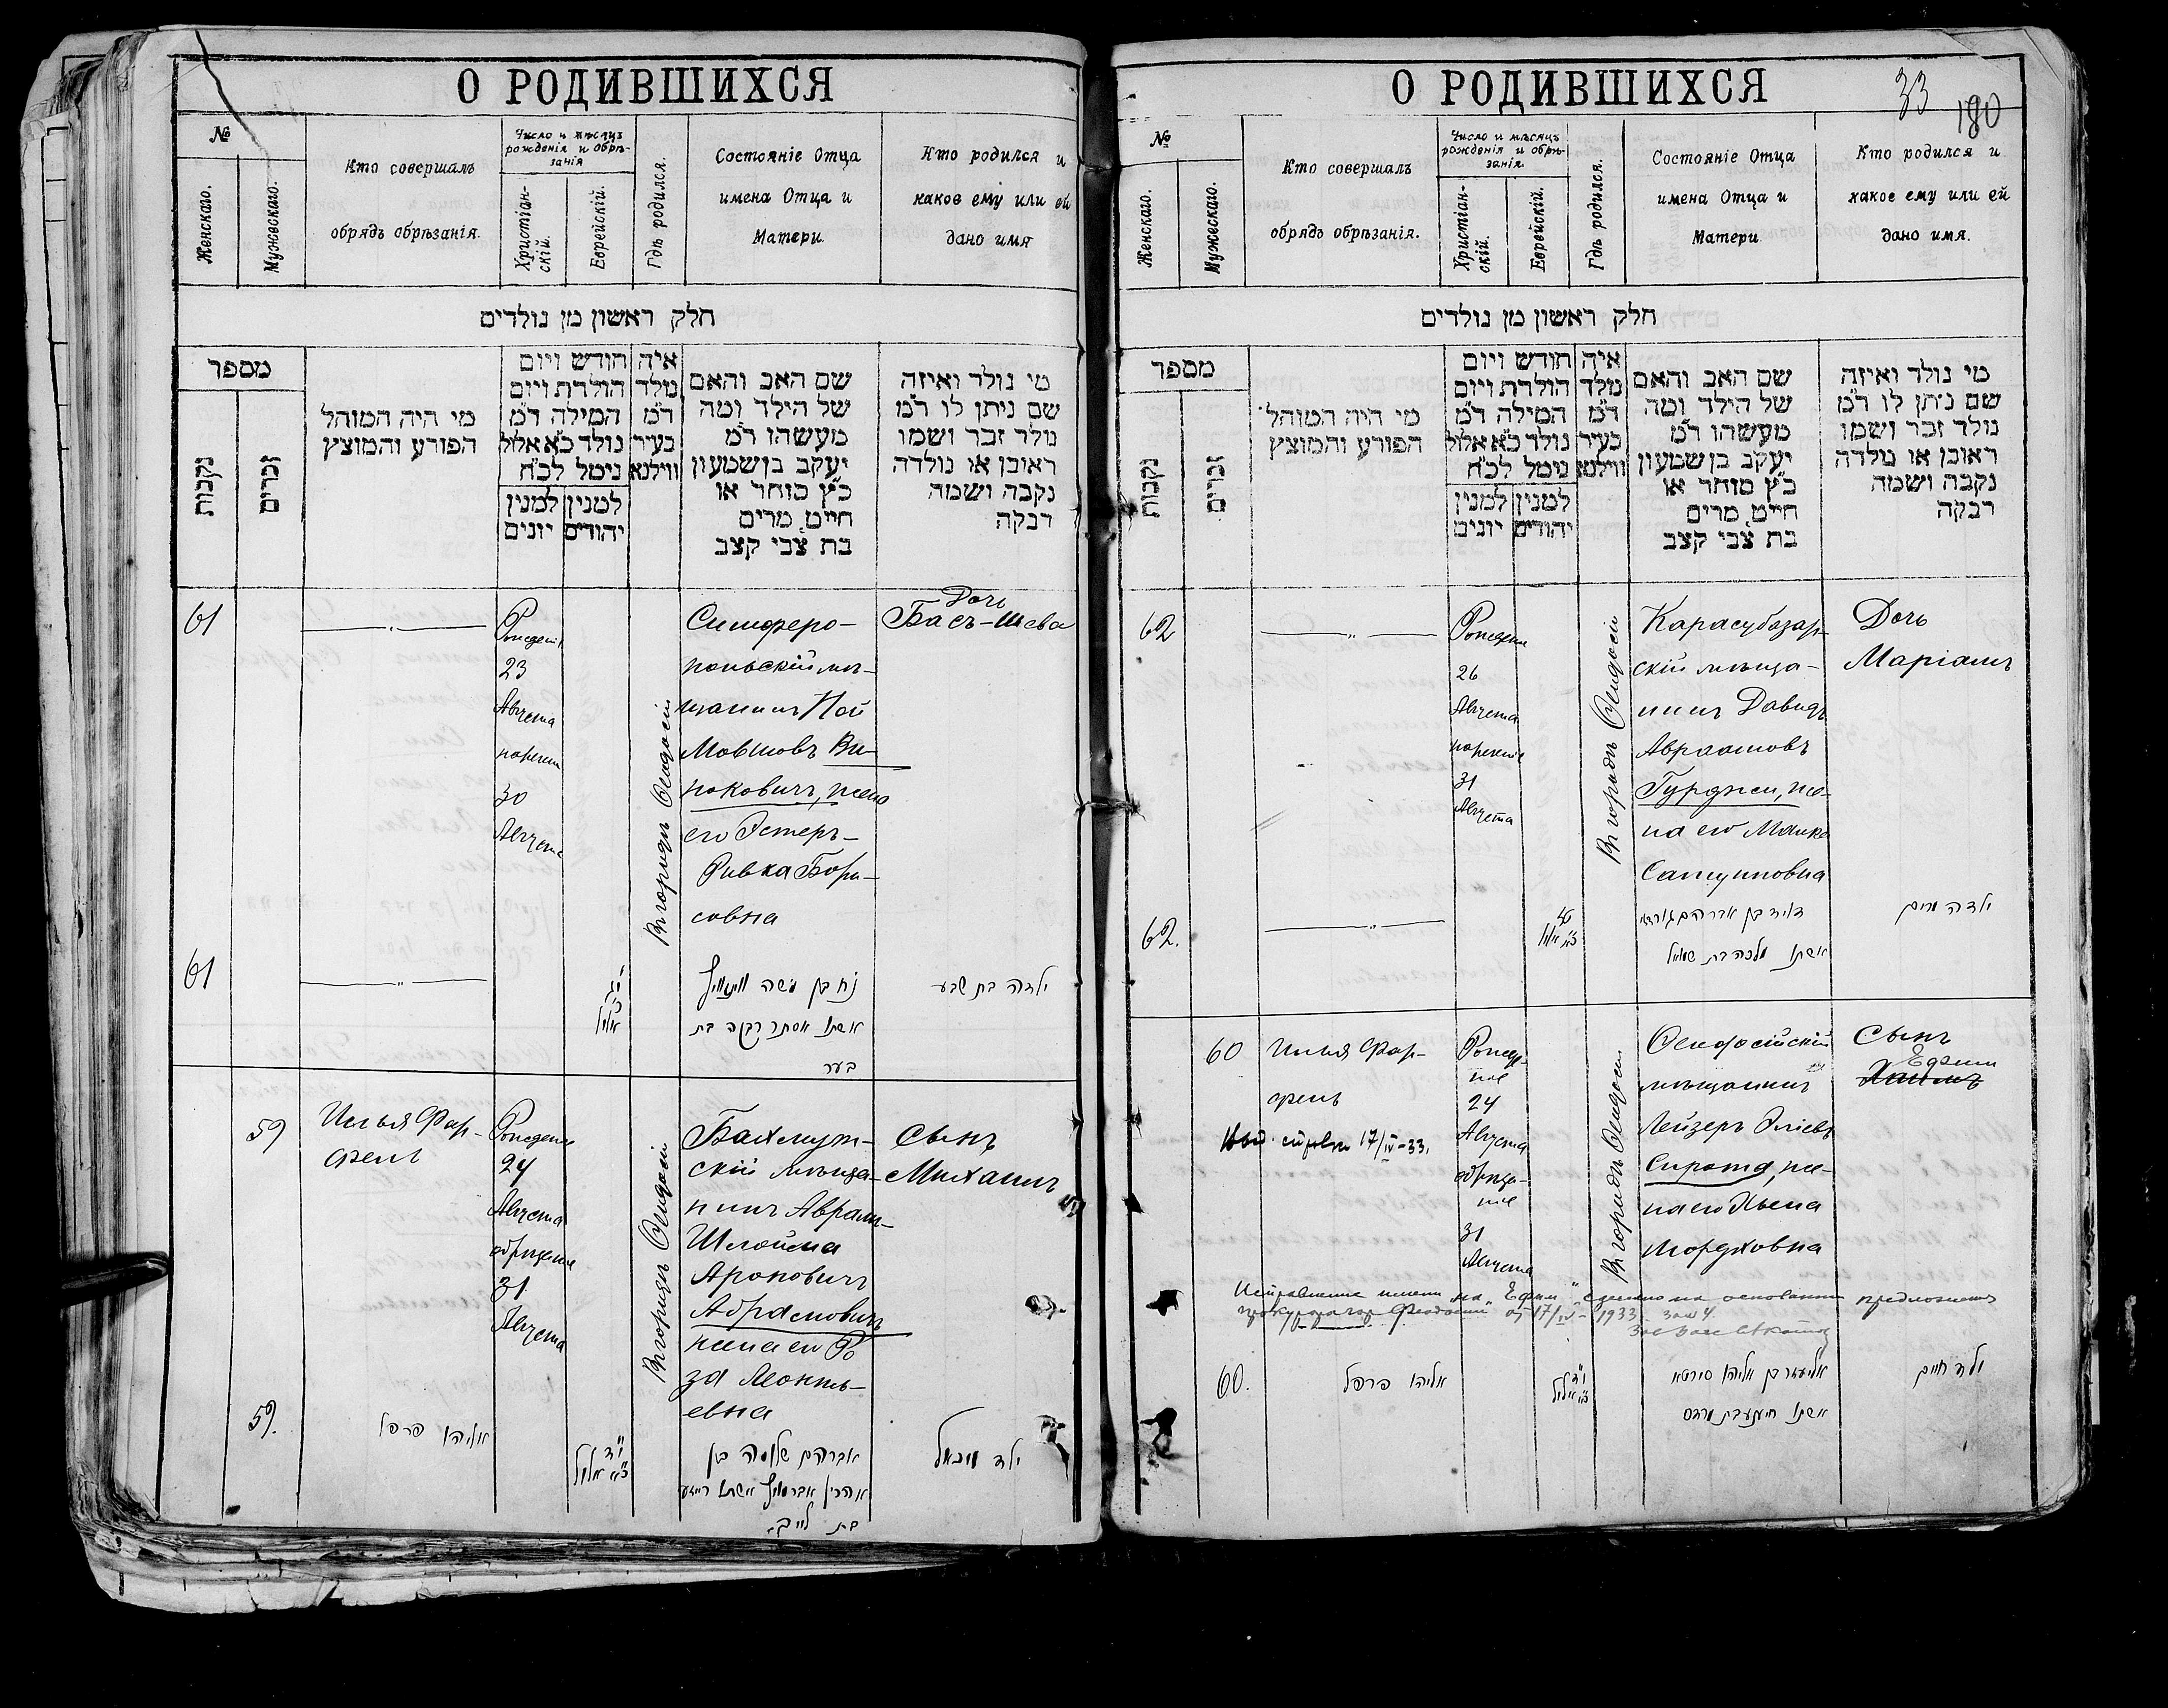 О РОДИВШИХСЯ
№
Женскаго.
Мужескаго.
Кто совершалъ
обрядъ обрѣзанія.
Число и мѣсяцъ
рожденія и обрѣ-
занія
Христіан-
скій.
Еврейскій.
Гдѣ родился.
Состояніе Отца
имена Отца и
Матери.
Кто родился и
какое ему или ей
дано имя
חלק ראשון מן נולדים
מספר
נקבות
זכרים
מי היה המוהל
הפורע והמוצץ
חודש ויום
הולדת ויום
המילה ד"מ
נולד כ"א אלול
נימל לכ"ח
למנין למנין
יהודים יונים
איה
נולד
ד"מ
בעיר
ווילנא
שם האב והאם
של הילד ומה
מעשהו ד"מ
יעקב בן שמעון
כ"ץ סוחר או
חייט מרים
בת צבי קצב
מי נולד ואיזה
שם ניתן לו ד"מ
נולד זכר ושמו
ראובן או נולדה
נקבה ושמה
רבקה
61
Рожденіе
23
Августа
нареченіе
30
Августа
Въ городѣ Ѳеодосіи
Симферо-
польскій мѣ-
щанинъ Ной
Мовшовъ Ви-
нокович, жена
его Эстеръ-
Ривка Бори-
совна
Дочь
Басъ-Шева
61
אלול
נח בן משה
אשתו אסתר רבקה בת
בער
ילדה בת שבע
59
Илья Фар-
фель
Рожденіе
24
Августа
обрѣзаніе
31
Августа
Въ городѣ Ѳеодосіи
Бахмут-
скій мѣща-
нинъ Аврам-
Шлойма
Аронович
Абрамовичъ
жена его Ро
за Леонть-
евна
Сынъ
Михаилъ
59.
אליהו פרפל
י"ד
אלול
אברהם שלמה בן
אהרן אברמוויץ אשתו רייזע
בת לייב
ילד מיכאל
О РОДИВШИХСЯ
33
180
№
Женскаго.
Мужескаго.
Кто совершалъ
обрядъ обрѣзанія.
Число и мѣсяцъ
рожденія и обрѣ-
занія.
Христіан-
скій.
Еврейскій.
Гдѣ родился.
Состояніе Отца
имена Отца и
Матери
Кто родился и
какое ему или ей
дано имя.
חלק ראשון מן נולדים
מספר
נקבות
זכרים
מי היה המוהל
הפורע והמוצץ
חודש ויום
הולדת ויום
המילה ד"מ
נולד כ"א אלול
נימל לכ"ח
למנין למנין
יהודים יונים
איה
נולד
ד"מ
בעיר
ווילנא
שם האב והאם
של הילד ומה
מעשהו ד"מ
יעקב בן שמעון
כ"ץ סוחר או
חייט מרים
בת צבי קצב
מי נולד ואיזה
שם ניתן לו ד"מ
נולד זכר ושמו
ראובן או נולדה
נקבה ושמה
רבקה
62
Рожденіе
26
Августа
нареченіе
31
Августа
Въ городѣ Ѳеодосіи
Карасубазар-
скій мѣща-
нинъ Давидъ
Авраамовъ
Гурджи, же-
на его Малка
Самуиловна
Дочь
Маріамъ
62.
אלול
דוד בן אברהם גורדזי
אשתו מלכה בת שמואל
ילדה מרים
60
Илья Фар-
фель
17/IV-33.
Рожде-
ніе
24
Августа
обрѣза-
ніе
31
Августа
Въ городѣ Ѳеодосіи
Ѳеодосійскій
мѣщанинъ
Лейзеръ Эліевъ
Сирота, же-
на его Хьена
Мордковна
Сынъ
Ефим
Хаимъ
Исправление имени на „Ефим“ сделано на основании предложения
прокурора гор. Феодосии от 17/IV-1933
60.
אליהו פרפל
י"ד
אלול
אליעזר בן אליהו סירטא
אשתו חיענע בת מרדכי
ילד חיים